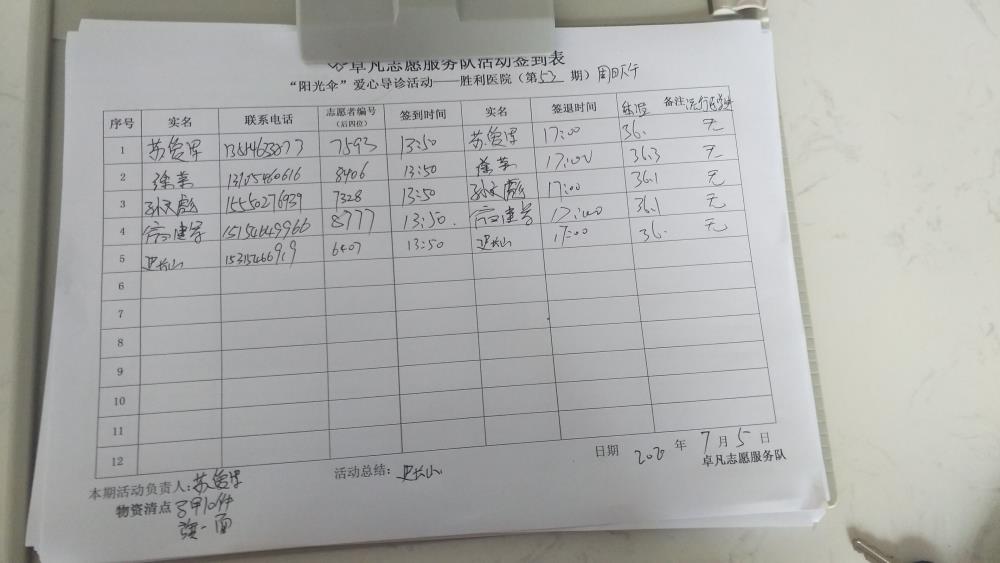 卓凡志愿服务队活动签到表
“阳光伞”爱心导诊活动——胜利医院（第53期）周日下午
序号 实名 联系电话 志愿者编号（后四位） 签到时间 实名 签退时间 体温 备注 流行病学
1 7593 13:50 17:00 36. 无
2 徐荣 13105460616 8406 13:50 徐荣 17:00 36.3 无
3 孙文彪 15550276939 7328 13:50 孙文彪 17:00 36.1 无
4 15154649966 8777 13:50. 17:00 36.1 无
5 史长山 15315466919 6407 13:50 史长山 17:00 36. 无
6
7
8
9
10
11
12
日期 2020年7月5日
本期活动负责人: 活动总结: 史长山 卓凡志愿服务队
物资清点 马甲10件
旗一面